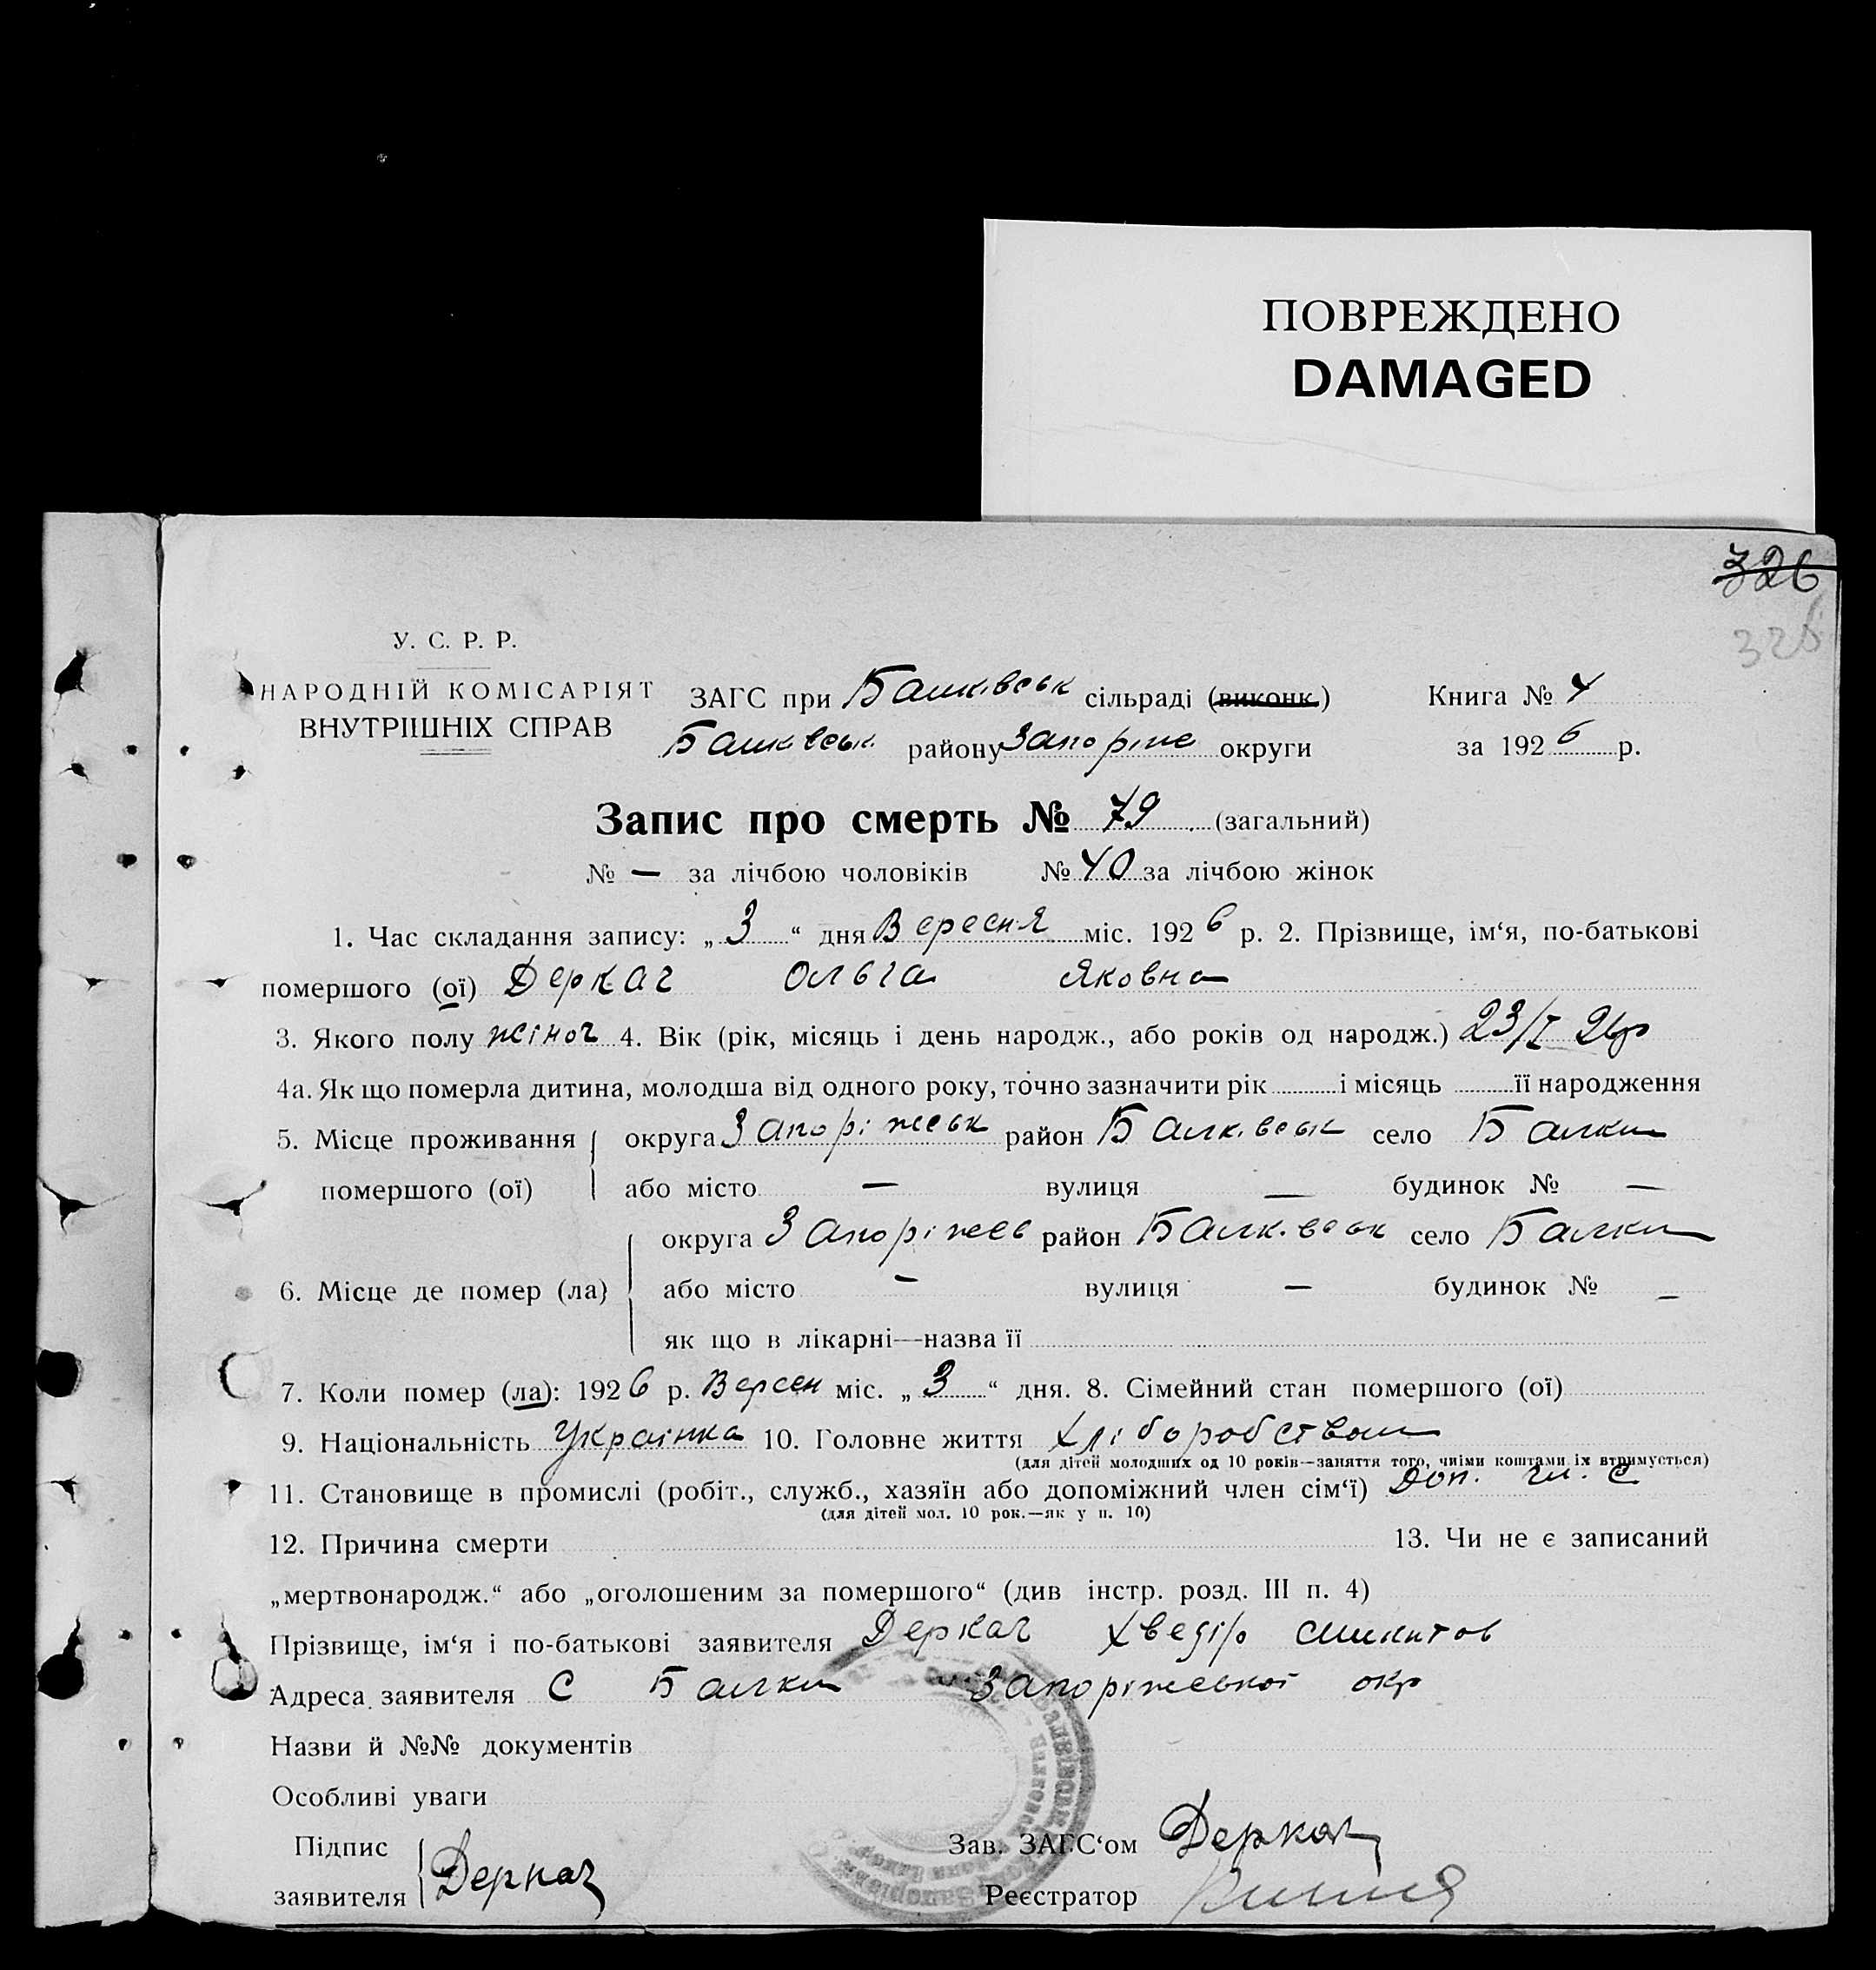 ПОВРЕЖДЕНО
DAMAGED
326
326
У. С. Р. Р.
НАРОДНІЙ КОМІСАРІЯТ
ВНУТРІШНІХ СПРАВ
ЗАГС при Балківськ сільраді (виконк.) Книга № 4
Балківськ. району Запоріж округи за 1926 р.
Запис про смерть № 79 (загальний)
№ — за лічбою чоловіків № 40 за лічбою жінок
1. Час складання запису: „3“ дня Вересня міс. 1926 р. 2. Прізвище, ім‘я, по-батькові
помершого (ої) Деркач Ольга Яковна
3. Якого полу жіноч 4. Вік (рік, місяць і день народж., або років од народж.) 23/I 26р
4а. Як що померла дитина, молодша від одного року, точно зазначити рік і місяць її народження
5. Місце проживання округа Запоріжськ район Балківськ село Балки
помершого (ої) або місто — вулиця — будинок № —
округа Запоріжсь район Балківськ село Балки
6. Місце де помер (ла) або місто — вулиця — будинок № —
як що в лікарні—назва її
7. Коли помер (ла): 1926 р. Версен міс. „3“ дня. 8. Сімейний стан помершого (ої)
9. Національність Українка 10. Головне життя Хліборобством
(для дітей молодших од 10 років—заняття того, чиїми коштами їх втримується)
11. Становище в промислі (робіт., служб., хазяїн або допоміжний член сім‘ї) Доп. чл. С
(для дітей мол. 10 рок.—як у п. 10)
12. Причина смерти 13. Чи не є записаний
„мертвонародж.“ або „оголошеним за помершого“ (див інстр. розд. III п. 4)
Прізвище, ім‘я і по-батькові заявителя Деркач Хведір Микитов
Адреса заявителя С Балки Запоріжської окр
Назви й №№ документів
Особливі уваги
Підпис
заявителя Деркач
Зав. ЗАГС‘ом Деркач
Реєстратор